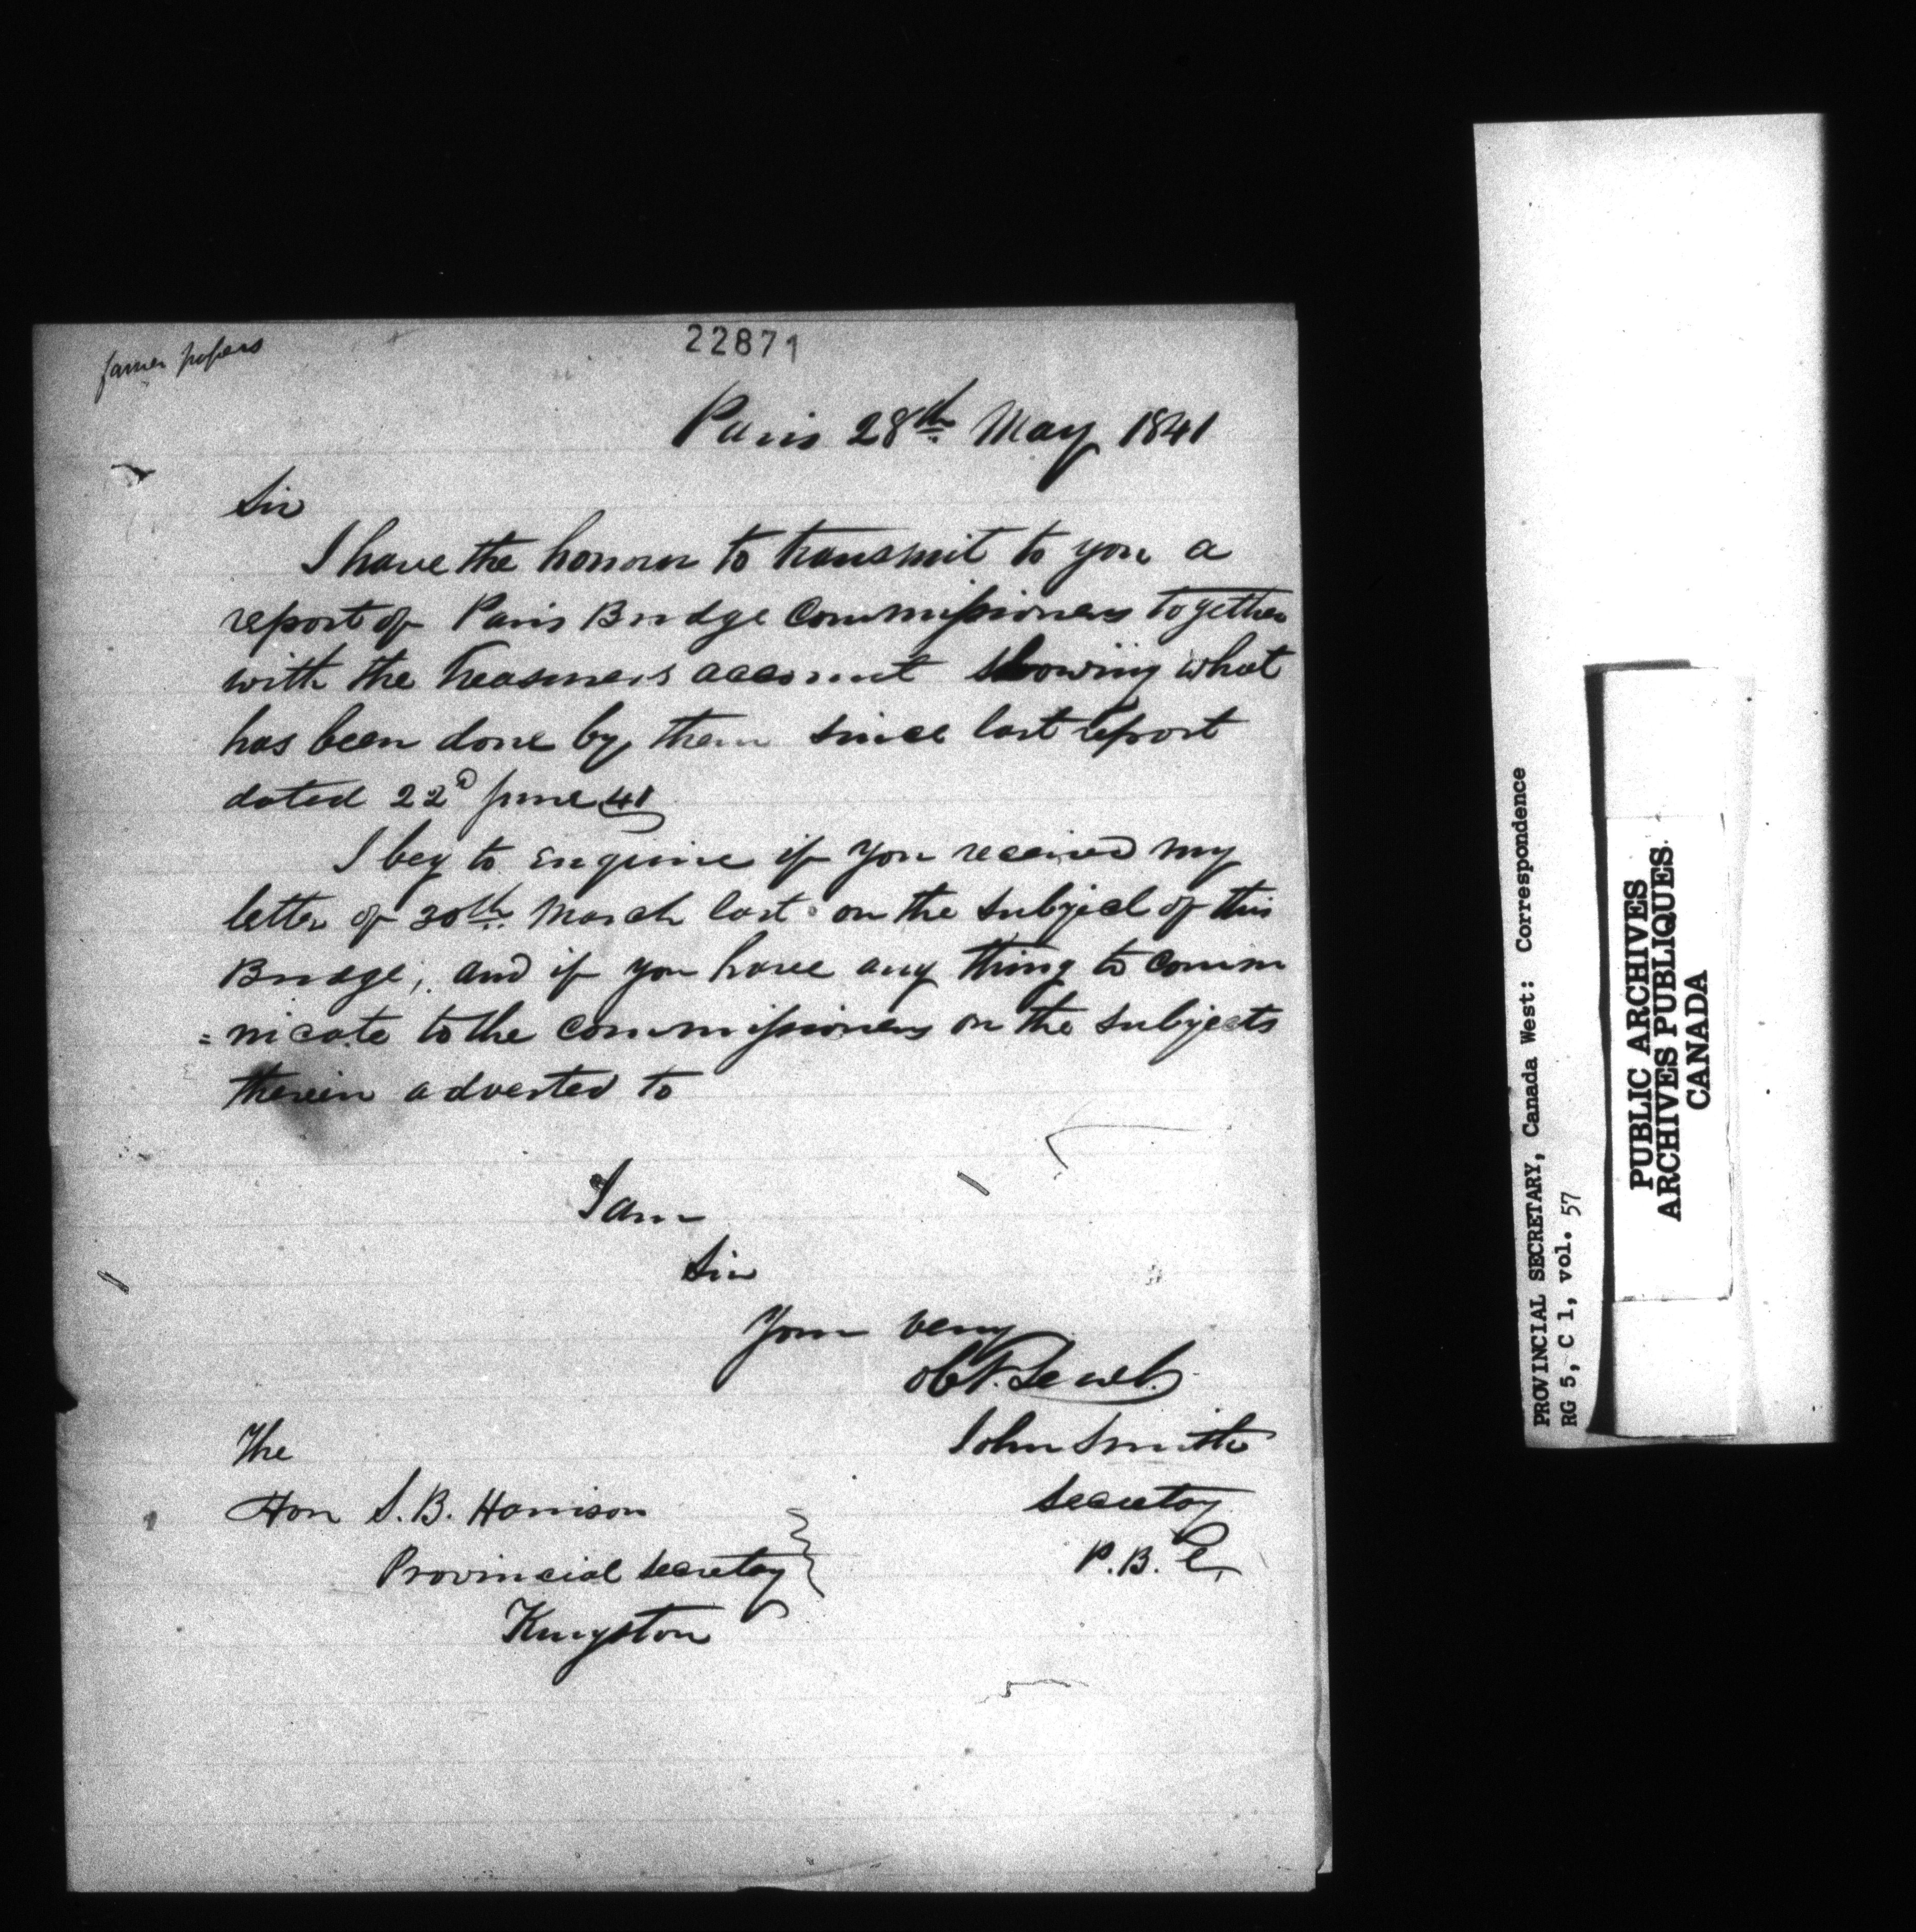 former papers
22871
Paris 28th May 1841
Sir
I have the honour to transmit to you a
report of Paris Bridge Commissioners together
with the treasurers account showing what
has been done by them since last report
dated 22d June 41
I beg to enquire if you received my
letter of 30th March last on the subject of this
Bridge, and if you have any thing to commu
=nicate to the commissioners on the subjects
therein adverted to
I am
Sir
Your very
obt. Servt.
John Smith
Secretay
P.B.C.
The
Hon S.B. Harrison
Provincial Secretay
Kingston
PROVINCIAL SECRETARY, Canada West: Correspondence
RG 5, C 1, vol. 57
PUBLIC ARCHIVES
ARCHIVES PUBLIQUES
CANADA